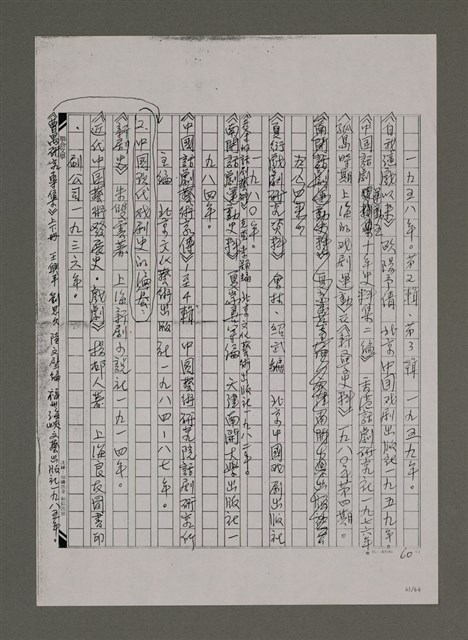 一九五八年。第２輯、第３輯 一九五九年。
《自我演戲以來》歐陽予倩 北京 中國戲劇出版社 一九五九年。
《中國話劇運動五十年史料集二編》 香港話劇研究社 一九七六年。
《孤島時期上海的戲劇運動》《新文學史料》一九八〇年第四期。
《南開話劇運動史料》
九八四年
《夏衍戲劇研究資料》會林、紹武編 北京 中國戲劇出版社
一九八〇年。
北京 文化藝術出版社 一九八二年。
《南開話劇運動史料》夏家善等編 天津 南開大學出版社 一
九八四年。
《中國話劇藝術家傳》１至４輯 中國藝術研究院話劇研究所
主編 北京 文化藝術出版社 一九八四～八七年。
２.中國現代戲劇史的論著：
《新劇史》朱雙雲著 上海 新劇小說社 一九一四年。
《近代中國藝術發展史・戲劇》 上海 良友圖書印
刷公司 一九三六年。
《曹禺研究專集》上下冊 王興平 劉思久 陸文璧編 福州 海峽文藝出版社 一九八五年。
60
61/64